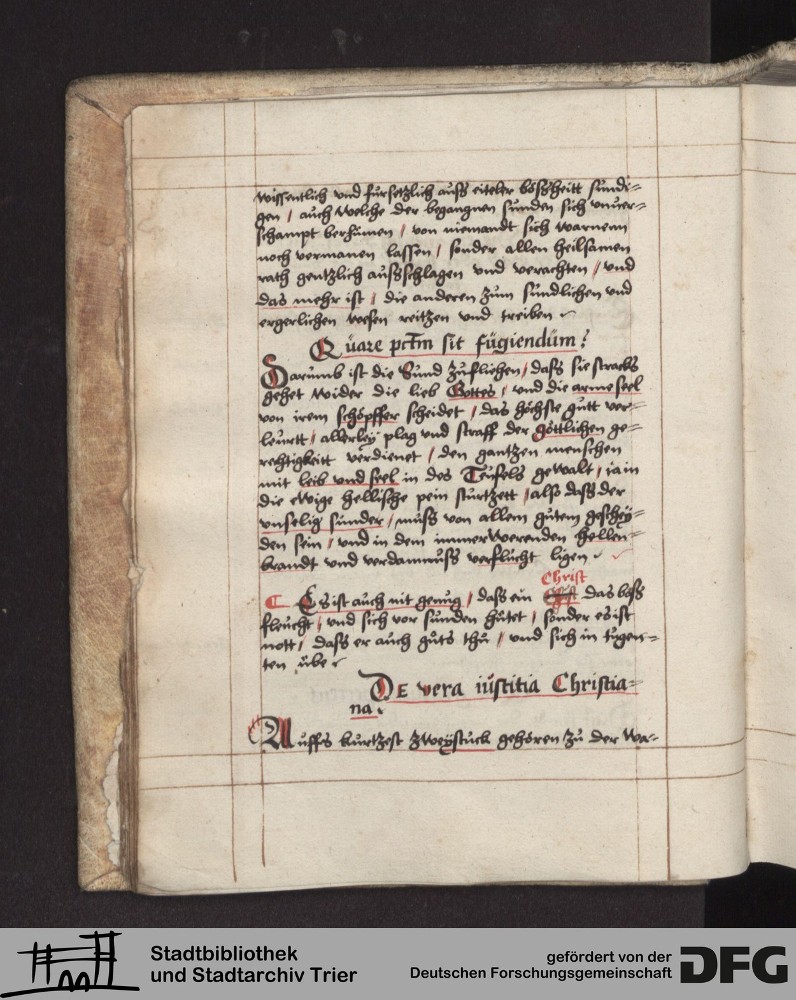 wissentlich und fürsetzlich auß eiteler bößheitt sündi=
gen / auch welche der begangnen sunden sich unver=
schampt berhümen / von niemandt sich warnenn
noch vermanen lassen / sonder allen heilsamen
rath gentzlich außschlagen und verachten / und
das mehr ist / die anderen zum sündlichen und
ergerlichen wesen reitzen und treiben
Quare pctm̄ sit fugiendum?
Darumb ist die Sund zufliehen / dass sie stracks
gehet wider die lieb Gottes / und die arme seel
von irem schöpffer scheidet / das höchste gutt ver=
leurtt / allerley plag und straff der göttlichen ge=
rechtigkeitt verdienet / den gantzen menschen
mit leib und seel in des Teufels gewalt / ja in
die ewige hellische pein sturtzett / also dass der
unselig sunder / muss von allem gutem geschey=
den sein / und in dem immerwerenden hellen=
brandt und verdamnuss verflucht ligen
Christ
Es ist auch nit genug / dass ein das böss
fleucht / und sich vor sunden hütet / sonder es ist
nott / dass er auch guts thu / und sich in tugen=
ten übe
De vera iustitia Christia=
na.
Auffs kurtzest zwey stuck gehören zu der wa=
Stadtbibliothek
und Stadtarchiv Trier
gefördert von der
Deutschen Forschungsgemeinschaft
DFG